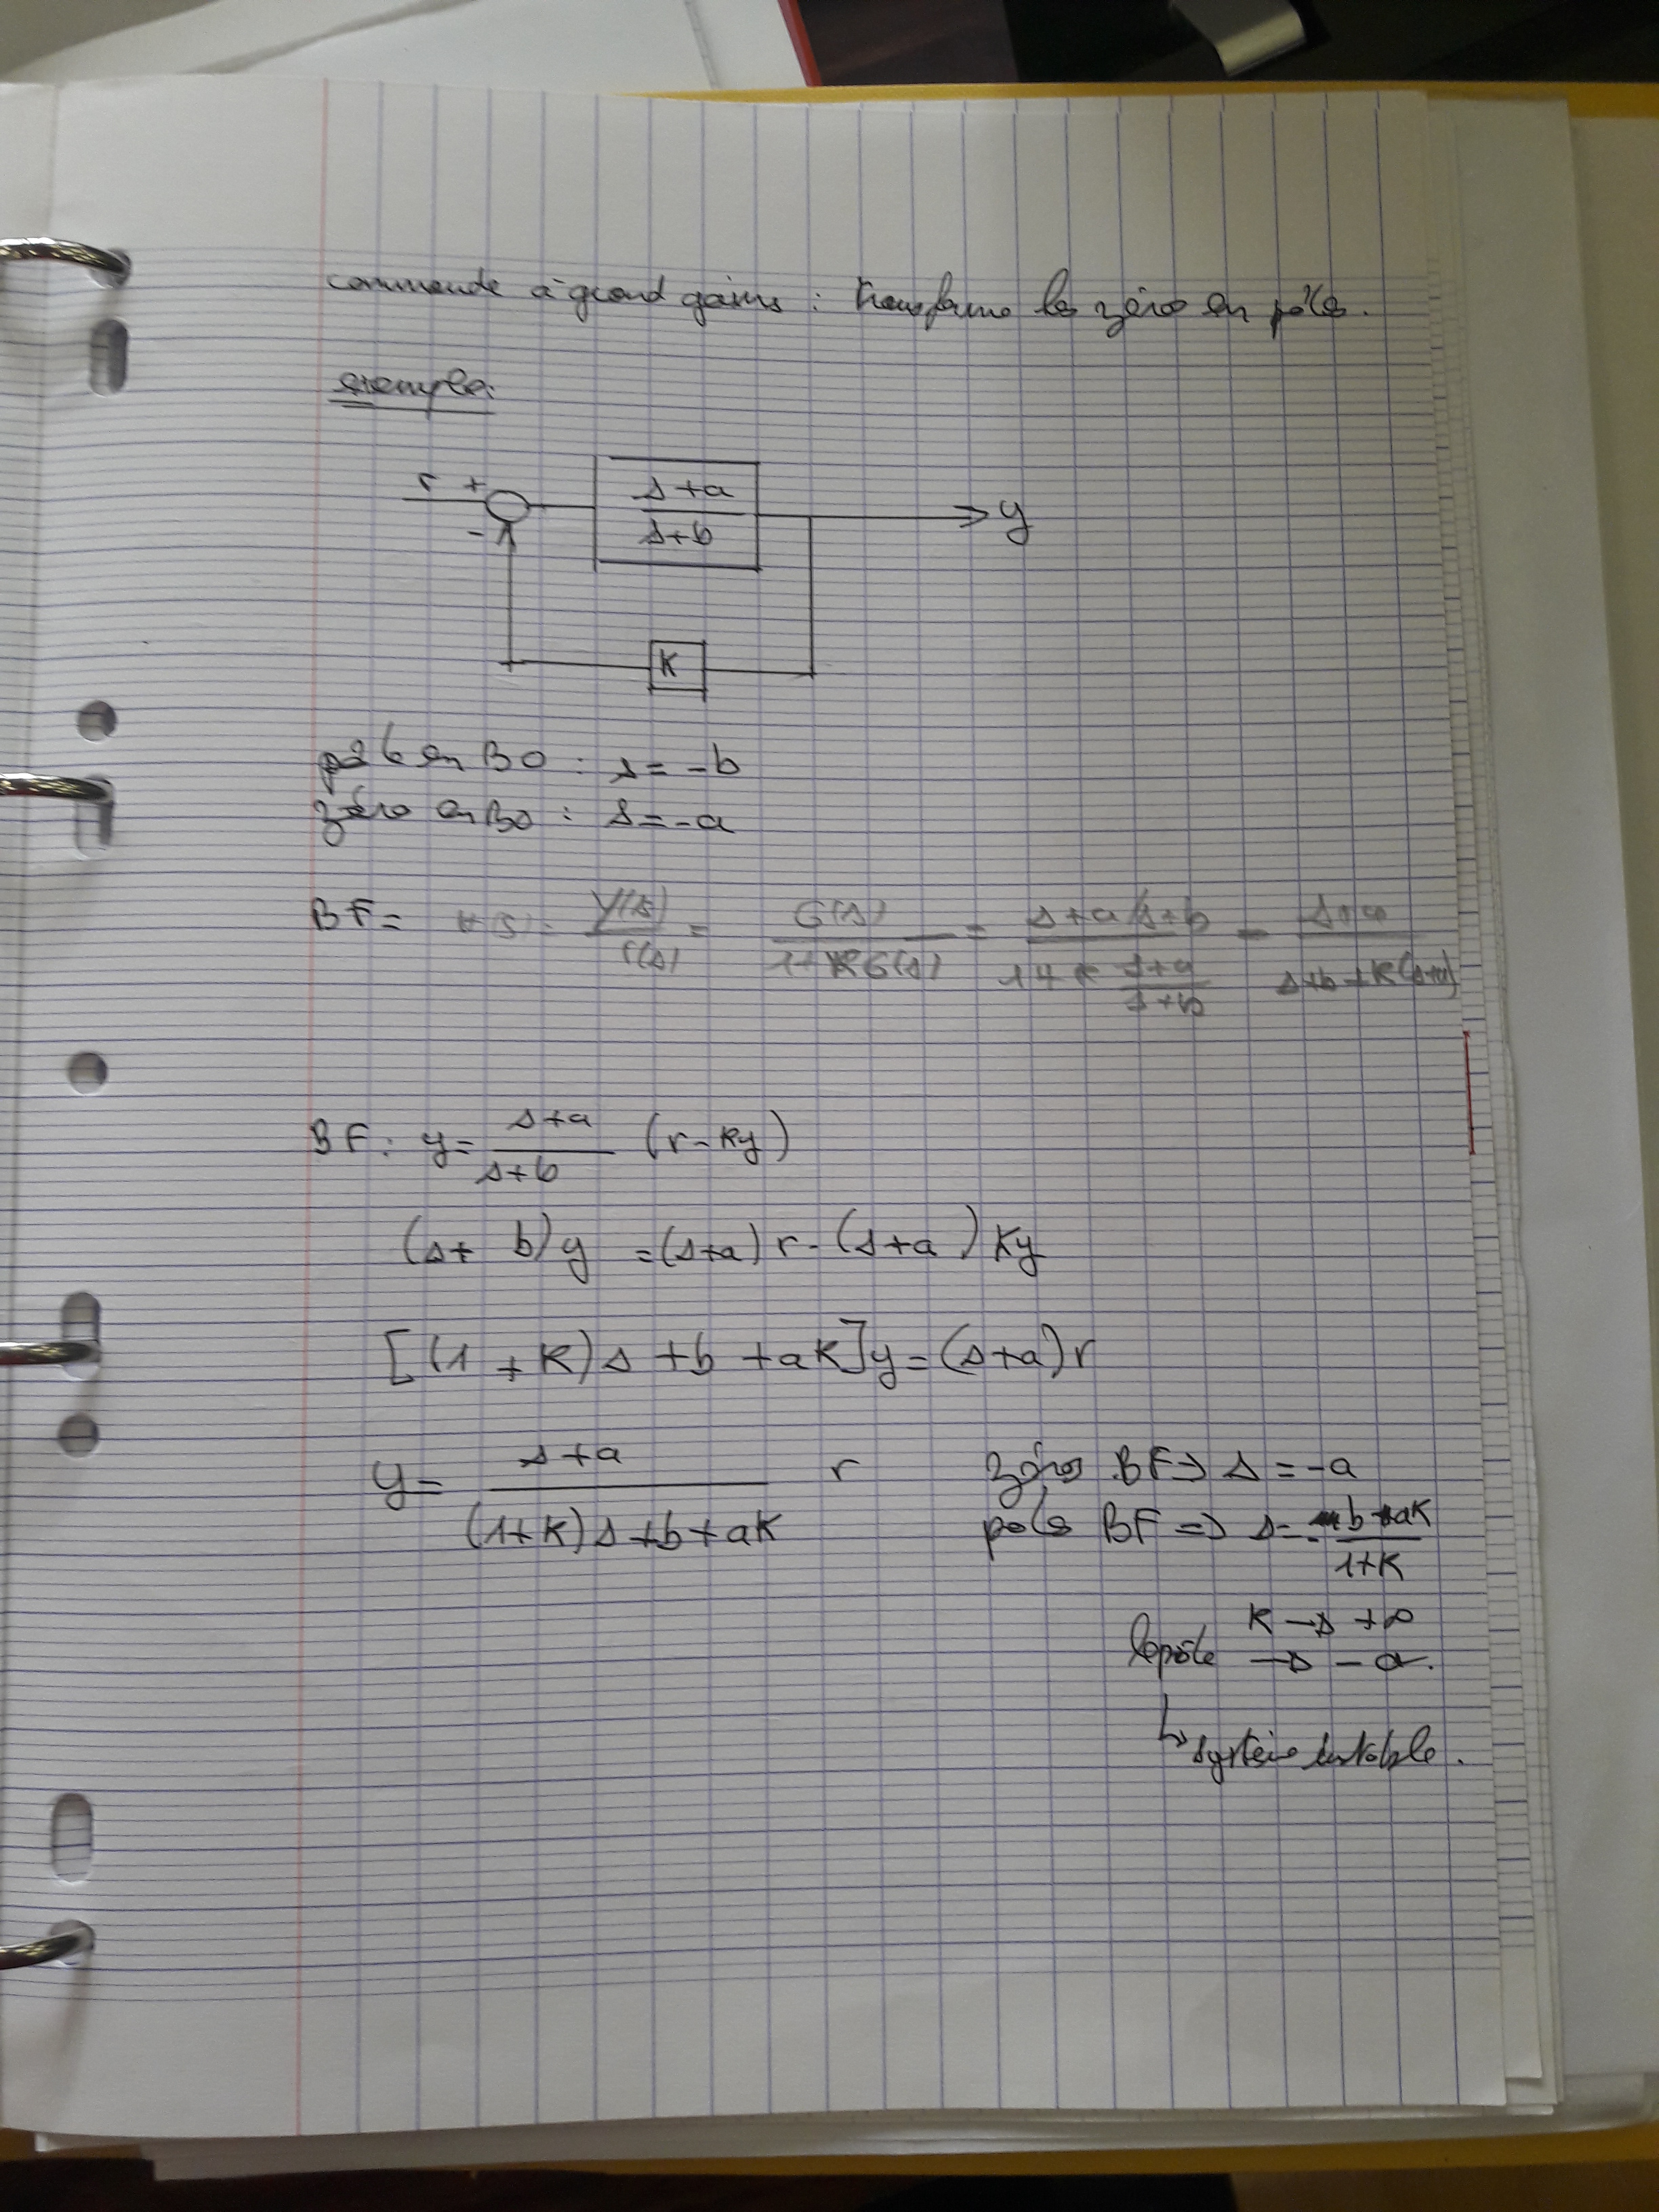 commande à grand gains : transforme les zéro en pôles.
exemple:
r + s+a
- s+b → y
K
pôle en BO : s = -b
zéro en BO : s = -a
BF = H(s) = Y(s)/r(s) = G(s)/1+KG(s) = s+a/s+b / 1+K s+a/s+b = s+a / s+b+K(s+a)
BF : y = s+a / s+b (r - Ky)
(s+ b)y = (s+a) r - (s+a) Ky
[(1 + K)s + b + aK]y = (s+a)r
y = s+a / (1+K)s+b+aK r
zéros BF ⇒ s = -a
pôle BF ⇒ s = - b+aK / 1+K
K → +∞
le pôle → -a.
↳ système